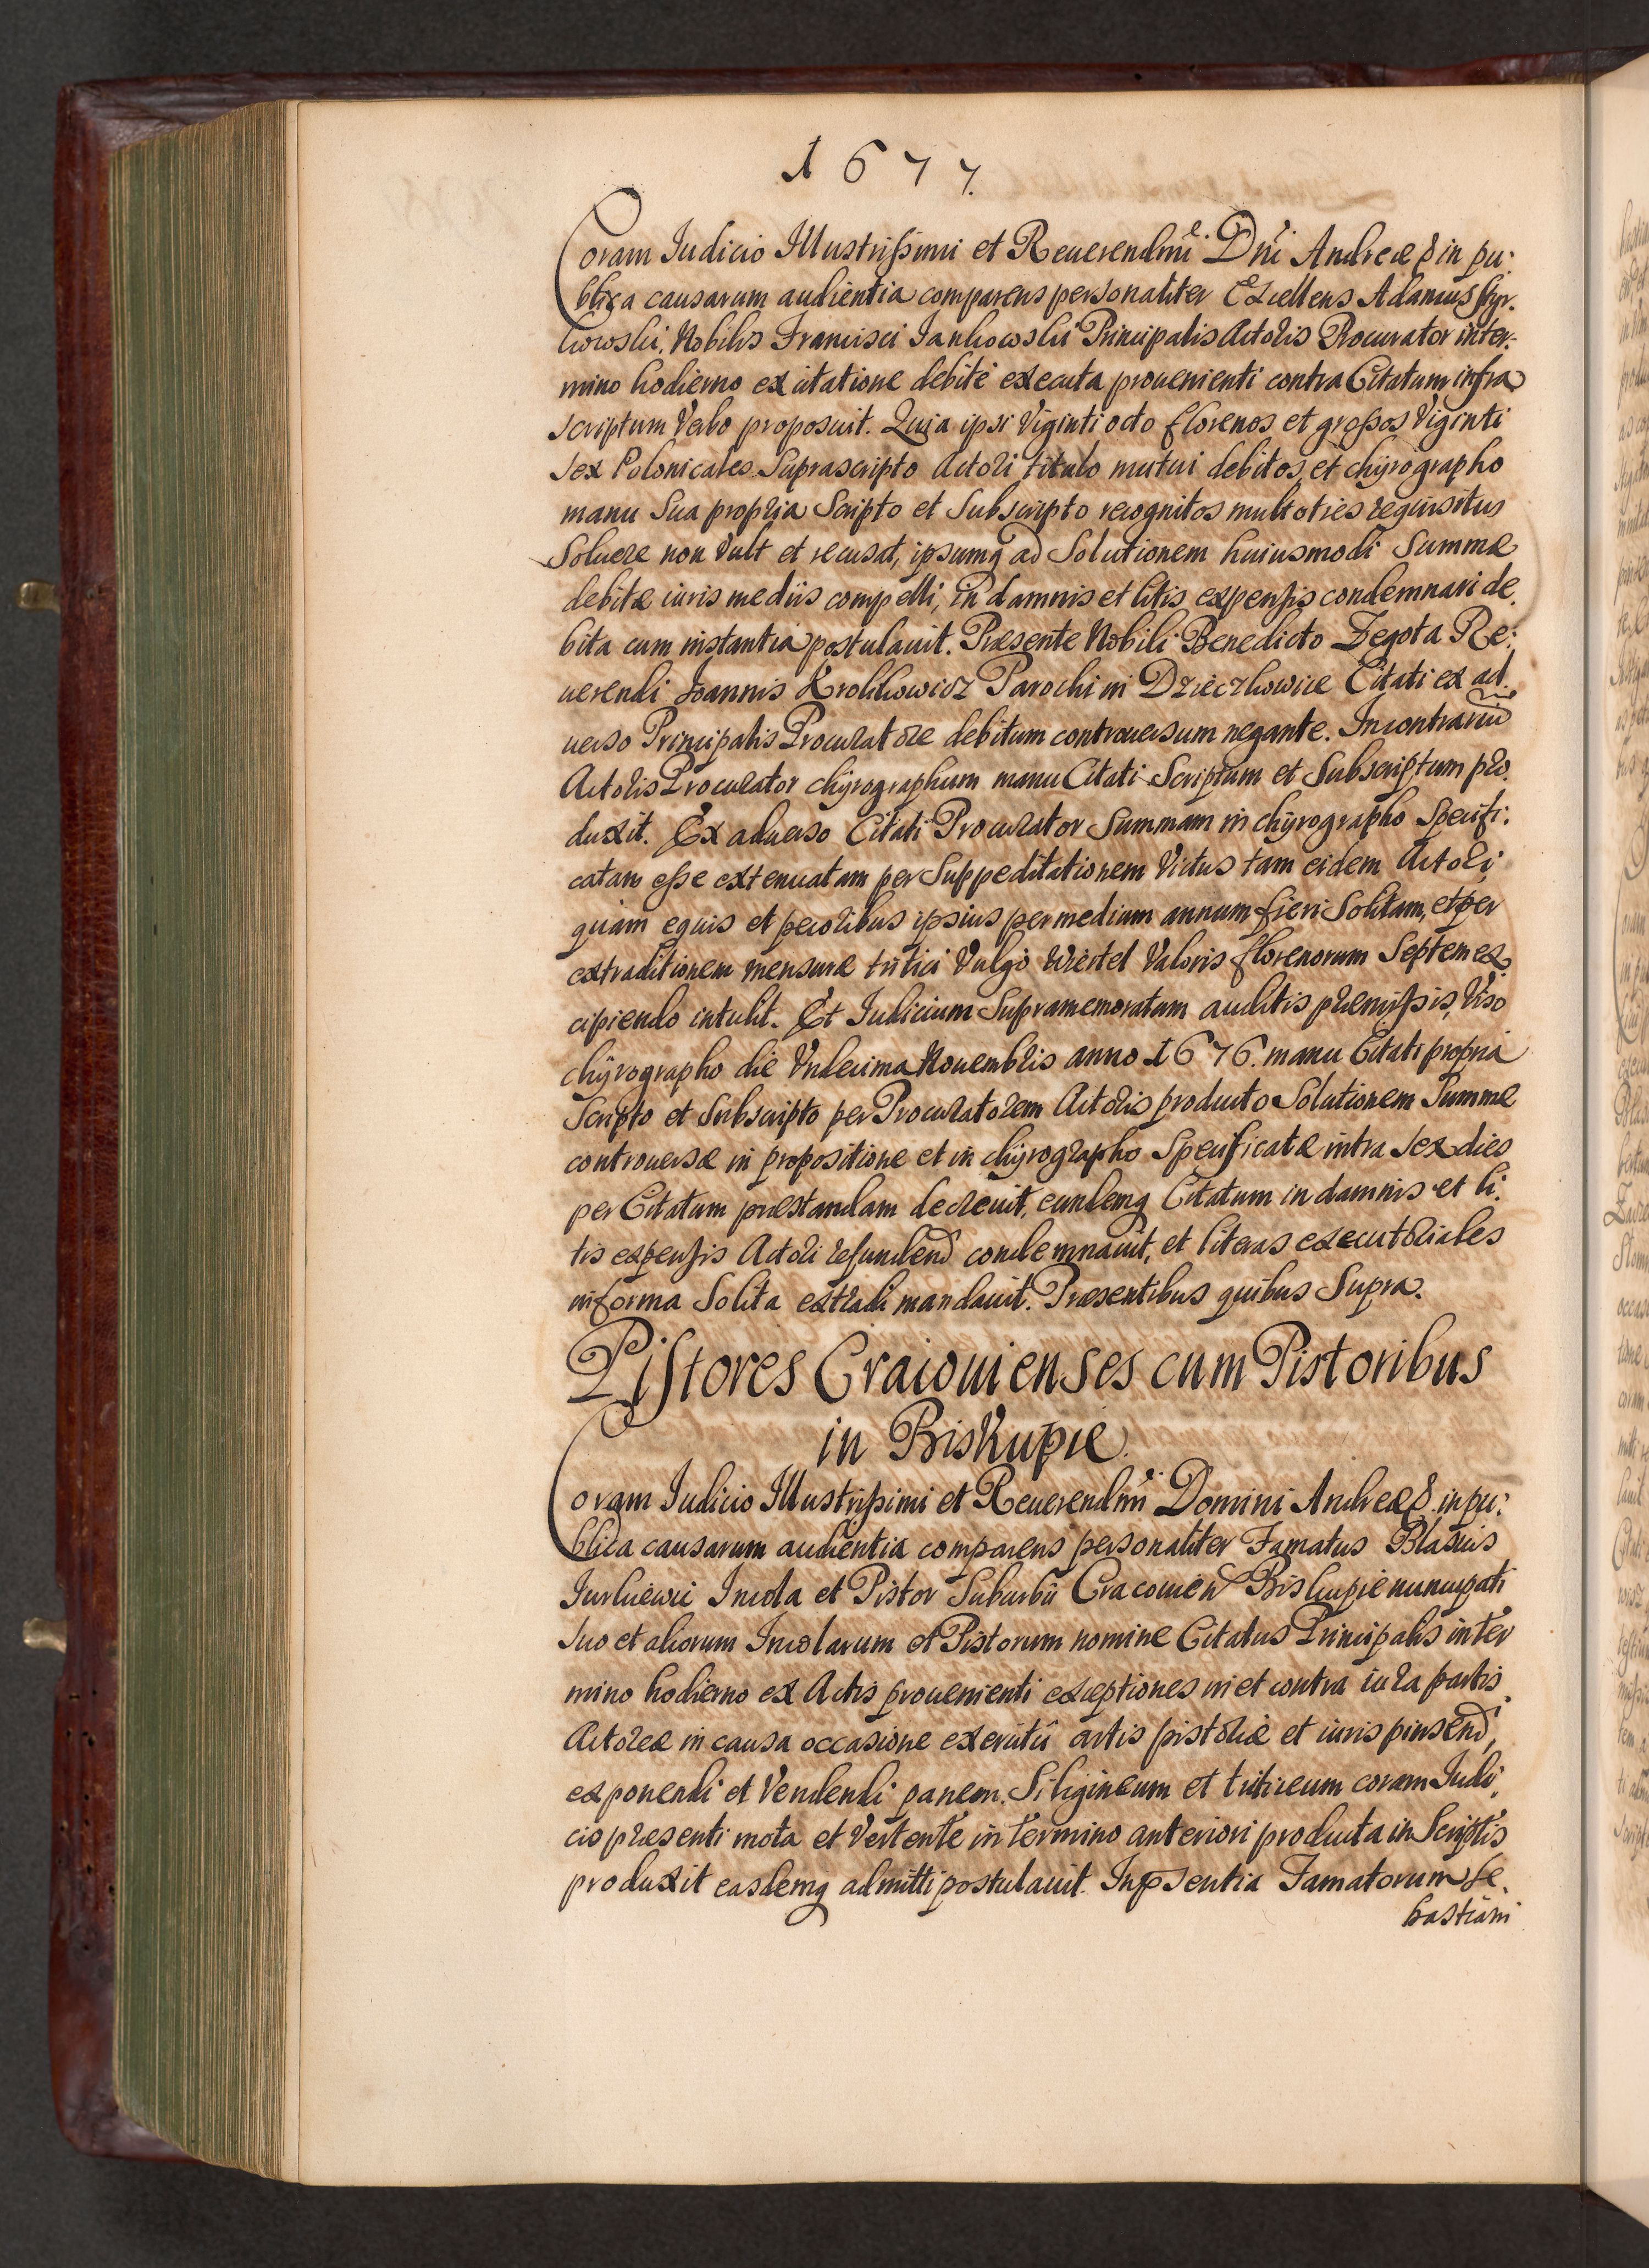 1677.
Coram Iudicio Illustrissimi et Reuerendmi Dni Andreæ & in pu:
blica causarum audientia comparens personaliter Excellens Adamus Gyr:
kowski, Nobilis Francisci Iankowski Principalis Actoris Procurator inter:
mino hodierno ex citatione debite executa prouenienti contra Citatum infra
scriptum Verbo proposuit. Quia ipsi Viginti octo florenos et grossos Viginti
sex Polonicales Suprascripto Actori titulo mutui debitos, et chyrographo
manu Sua propria Scripto et Subscripto recognitos multoties requisitus
Soluere non Vult et recusat, ipsumq ad Solutionem huiusmodi Summæ
debitæ iuris mediis compelli, in damnis et litis expensis condemnari de
bita cum instantia postulauit. Præsente Nobili Benedicto Zegota Re:
uerendi Joannis Krolikowicz Parochi in Dzieczkowice Citati ex ad
uerso Principalis Procuratore debitum controuersum negante. In contrariũ
Actoris Procurator chyrographum manu Citati Scriptum et Subscriptum pro
duxit. Ex aduerso Citati Procurator Summam in chyrographo Specifi:
catam esse extenuatam per Suppeditationem Victus tam eidem Actori
quam equis et pecoribus ipsius per medium annum fieri Solitam, et per
extraditionem mensuræ tritici Vulgo Wiertel Valoris florenorum Septem ex
cipiendo intulit. Et Iudicium Supramemoratum auditis præmissis, Viso
chyrographo die Vndecima Nouembris anno 1676. manu Citati propria
Scripto et Subscripto per Procuratorem Actoris producto Solutionem Summæ
controuersæ in propositione et in chyrographo Specificatæ intra sex dies
per Citatum præstandam decreuit, eundemq Citatum in damnis et li:
tis expensis Actori refundend condemnauit, et literas executoriales
in forma Solita extradi mandauit. Præsentibus quibus Supra.
Pistores Cracouienses cum Pistoribus
in Biskupie.
Coram Iudicio Illustrissimi et Reuerendmi Domini Andreæ & in pu:
blica causarum audientia comparens personaliter Famatus Blasius
Iurkiewic Incola et Pistor Suburbii Cracouien Biskupie nuncupati
suo et aliorum Incolarum et Pistorum nomine Citatus Principalis inter
mino hodierno ex Actis prouenienti exceptiones in et contra iura partis
Actoreæ in causa occasione exercitii artis pistoriæ et iuris pinsend,
exponendi et Vendendi panem Siligineum et triticeum coram Iudi:
cio præsenti mota et Vertente in termino anteriori producta in Scriptis
produxit easdemq admitti postulauit. In pñsentia Famatorum Se
bastiani